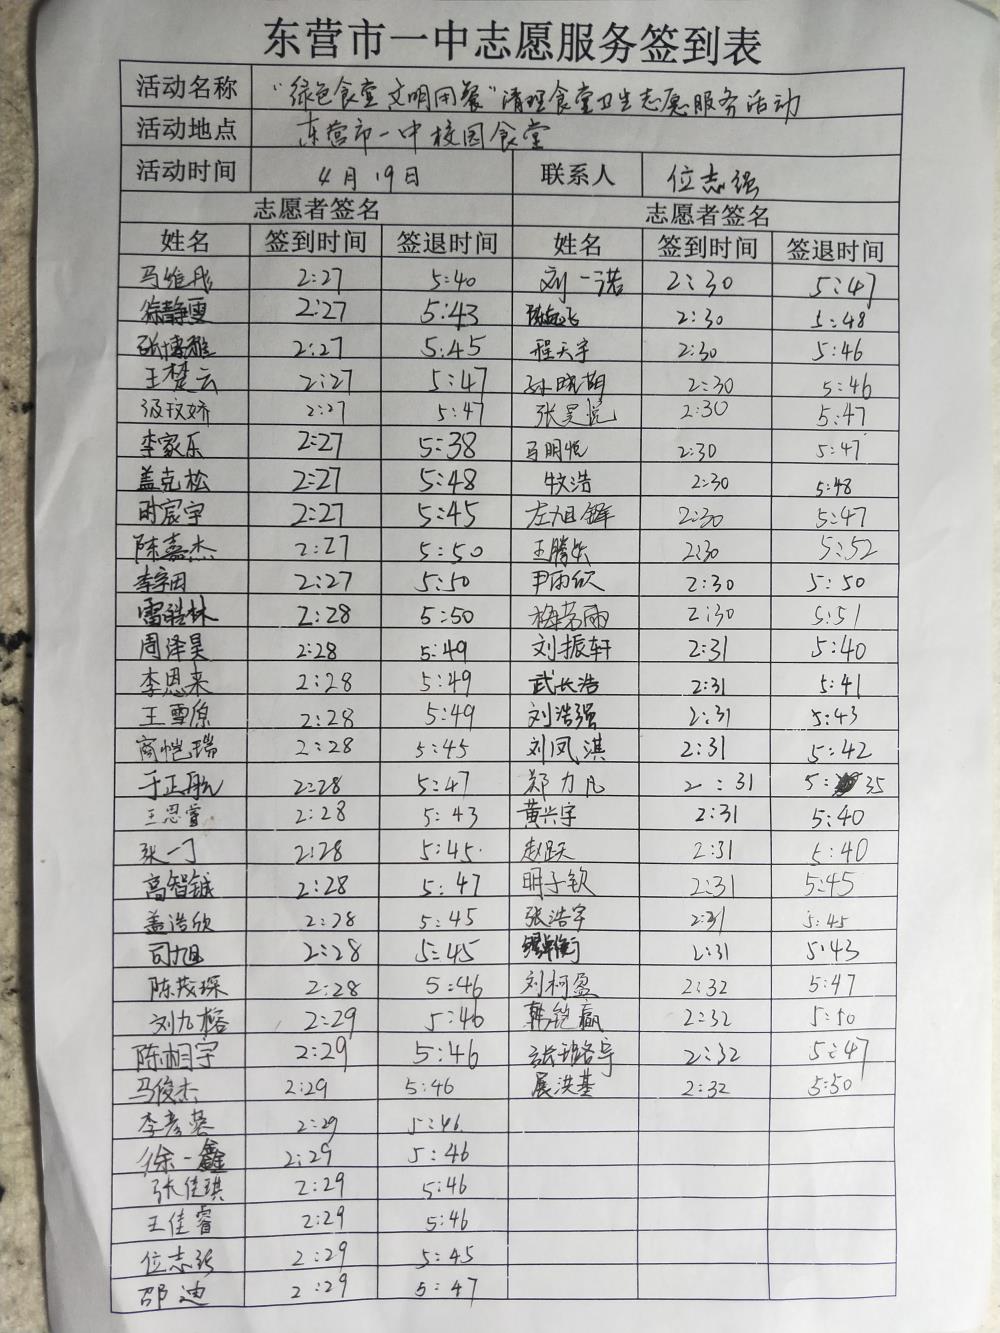 东营市一中志愿服务签到表
活动名称 "绿色食堂 文明用餐"清理食堂卫生志愿服务活动
活动地点 东营市一中校园食堂
活动时间 4月19日 联系人 位志强
志愿者签名 志愿者签名
姓名 签到时间 签退时间 姓名 签到时间 签退时间
马维彤 2:27 5:40 刘一诺 2:30 5:47
徐静雯 2:27 5:43 2:30 5:48
张博雅 2:27 5:45 程天宇 2:30 5:46
王楚云 2:27 5:47 孙晓萌 2:30 5:46
级玟娇 2:27 5:47 张昊悦 2:30 5:47
李家乐 2:27 5:38 马明悦 2:30 5:47
盖克松 2:27 5:48 牧浩 2:30 5:48
时宸宇 2:27 5:45 左旭铎 2:30 5:47
陈嘉杰 2:27 5:50 王腾兵 2:30 5:52
李宇田 2:27 5:50 尹雨欣 2:30 5:50
雷皓林 2:28 5:50 梅茗雨 2:30 5:51
周泽昊 2:28 5:49 刘振轩 2:31 5:40
李恩来 2:28 5:49 武长浩 2:31 5:41
王雪原 2:28 5:49 刘浩强 2:31 5:43
商恺瑞 2:28 5:45 刘凤淇 2:31 5:42
于正航 2:28 5:47 郑力凡 2:31 5:35
王思萱 2:28 5:43 黄兴宇 2:31 5:40
张一丁 2:28 5:45 赵跃 2:31 5:40
高智铖 2:28 5:47 明子钦 2:31 5:45
盖浩欣 2:28 5:45 张浩宇 2:31 5:45
司旭 2:28 5:45 2:31 5:43
陈茂琛 2:28 5:46 刘柯盈 2:32 5:47
刘九榕 2:29 5:46 韩铠赢 2:32 5:50
陈相宇 2:29 5:46 张珈宁 2:32 5:47
马俊杰 2:29 5:46 展洪基 2:32 5:50
李彦蓉 2:29 5:46
徐一鑫 2:29 5:46
张佳琪 2:29 5:46
王佳睿 2:29 5:46
位志强 2:29 5:45
邵迪 2:29 5:47